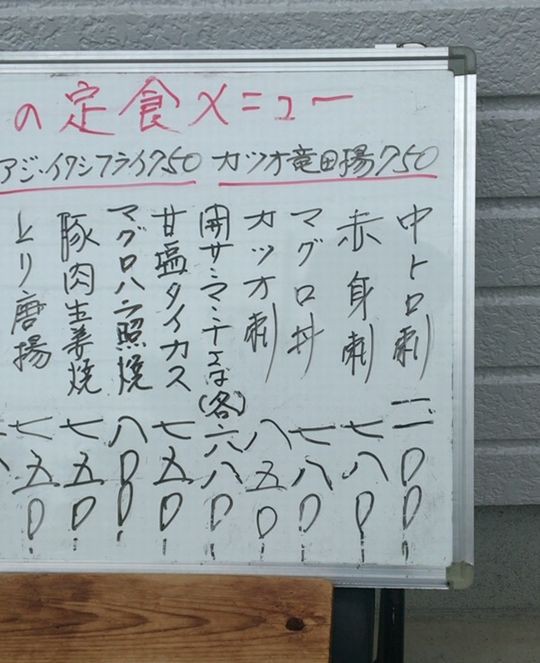 の定食メニュー
アジ・イワシフライ750 カツオ竜田揚750
中トロ刺 一二〇〇!
赤身刺 七八〇!
マグロ丼 七八〇!
カツオ刺 八五〇!
開サンマ・チアミは(各)六八〇!
甘塩タイカス 七五〇!
マグロハラ照焼 八〇〇!
豚肉生姜焼 七五〇!
とり唐揚 七五〇!